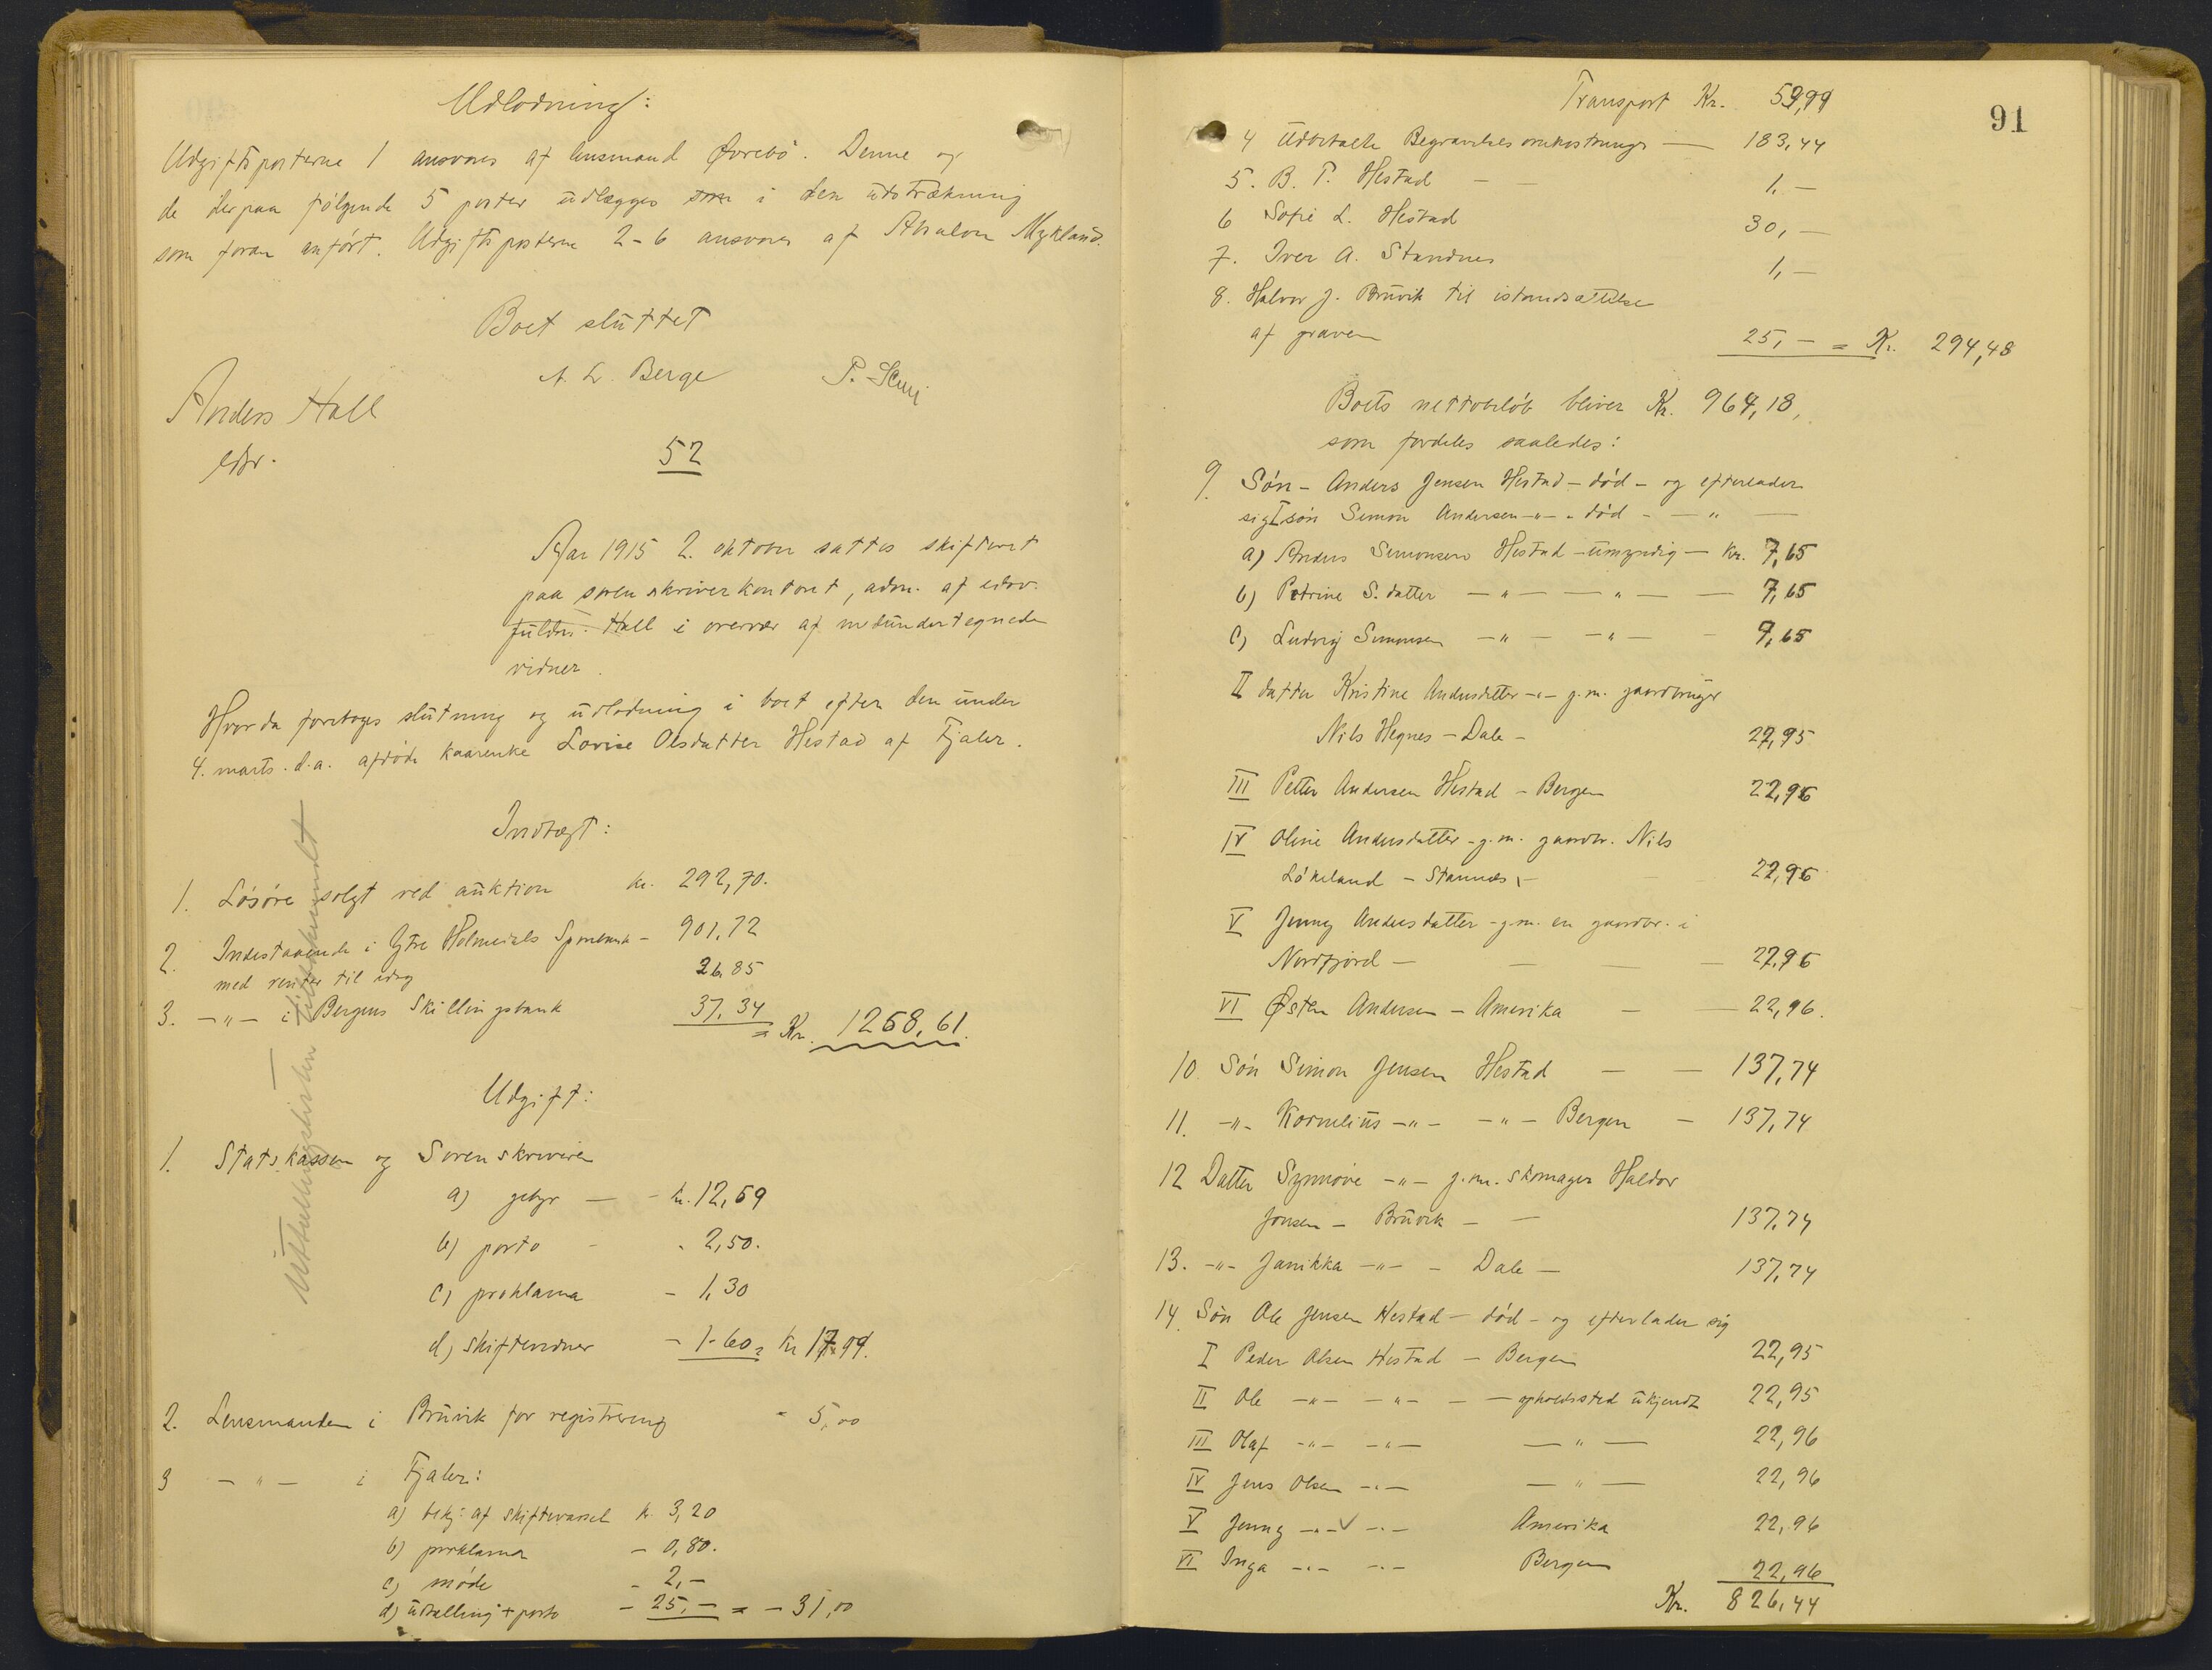 Udlodning:
Udgiftsposterne 1 ansvares af lensmand Øvrebö. Denne og
de derpaa fölgende 5 poster udlægges som i den udstrækning
som foran anfört. Udgiftsposterne 2-6 ansvares af Absalon Mykland.
Boet sluttet
A. L. Berge P.
Anders Hall
edsv.
52
Aar 1915 2. oktober sattes skifteret
paa sorenskriverkontoret, adm. af edsv.
fuldm. Hall i overvær af medundertegnede
vidner.
Hvorda foretoges slutning og udlodning i boet efter den under
4. marts d.a. afdöde kaarenke Lovise Olsdatter Hestad af Fjaler.
Indtægt:
1. Lösöre solgt ved auktion kr. 292,70.
2. Indestaaende i Ytre Holmedals Sparebank - 901,72
med renter til idag 26,85
3. -"- i Bergens Skillingsbank 37,34
= Kr. 1258,61.
Udgift:
1. Statskassen og Sorenskriveren
a) gebyr - - kr. 12,59
b) porto - - 2,50.
c) proklama - 1,30
d) skiftevidner - 1-60 = kr 17,99.
2. Lensmanden i Bruvik for registrering - 5,00
3 - " - i Fjaler:
a) bekj. af skiftevarsel kr. 3,20
b) proklama - 0,80.
c) möde - 2,-
d) udbetaling + porto - 25,- = - 31,00
Utbetalingslisten
91
Transport Kr. 53,99
4 Udbetalte Begravelsesomkostninger — 183,44
5. B. T. Hestad - - 1,-
6 Sofie L. Hestad 30,-
7. Iver A. Standnes 1,-
8. Halvor J. Bruvik til istandsættelse
af graven 25,- = Kr. 294,48
Boets nettobelöb bliver Kr. 964,13,
som fordeles saaledes:
9. Sön - Anders Jensen Hestad - död - og efterlader
sig I sön Simon Andersen -"- - död - - " -
a) Anders Simonsen Hestad - umyndig - kr. 7,65
b) Petrine S. datter - " - - " - - 7,65
c) Ludvig Simonsen - " - - " - - 7,65
II datter Kristine Andersdatter -"- g.m. gaardbruger
Nils Hegnes - Dale - 22,95
III Petter Andersen Hestad - Bergen 22,96
IV Oline Andersdatter - g.m. gaardbr. Nils
Lökeland - Stavnes - 22,96
V Jenny Andersdatter - g.m. en gaardbr. i
Nordfjord - - - - 22,96
VI Østen Andersen - Amerika - - 22,96.
10. Sön Simon Jensen Hestad - - 137,74
11. -"- Kornelius -"- -"- Bergen - 137,74
12 Datter Synnöve -"- g.m. skomager Haldor
Jonsen - Bruvik - - 137,74
13. -"- Janikka -"- - Dale - 137,74
14. Sön Ole Jensen Hestad - död - og efterlader sig
I Peder Olsen Hestad - Bergen 22,95
II Ole -"- -"- - - opholdssted ukjendt 22,95
III Olaf -"- -"- - " - 22,96
IV Jens Olsen -"- - " - 22,96
V Jenny -"- ✓ -"- Amerika 22,96
VI Inga -"- -"- Bergen 22,96
Kr. 826,44